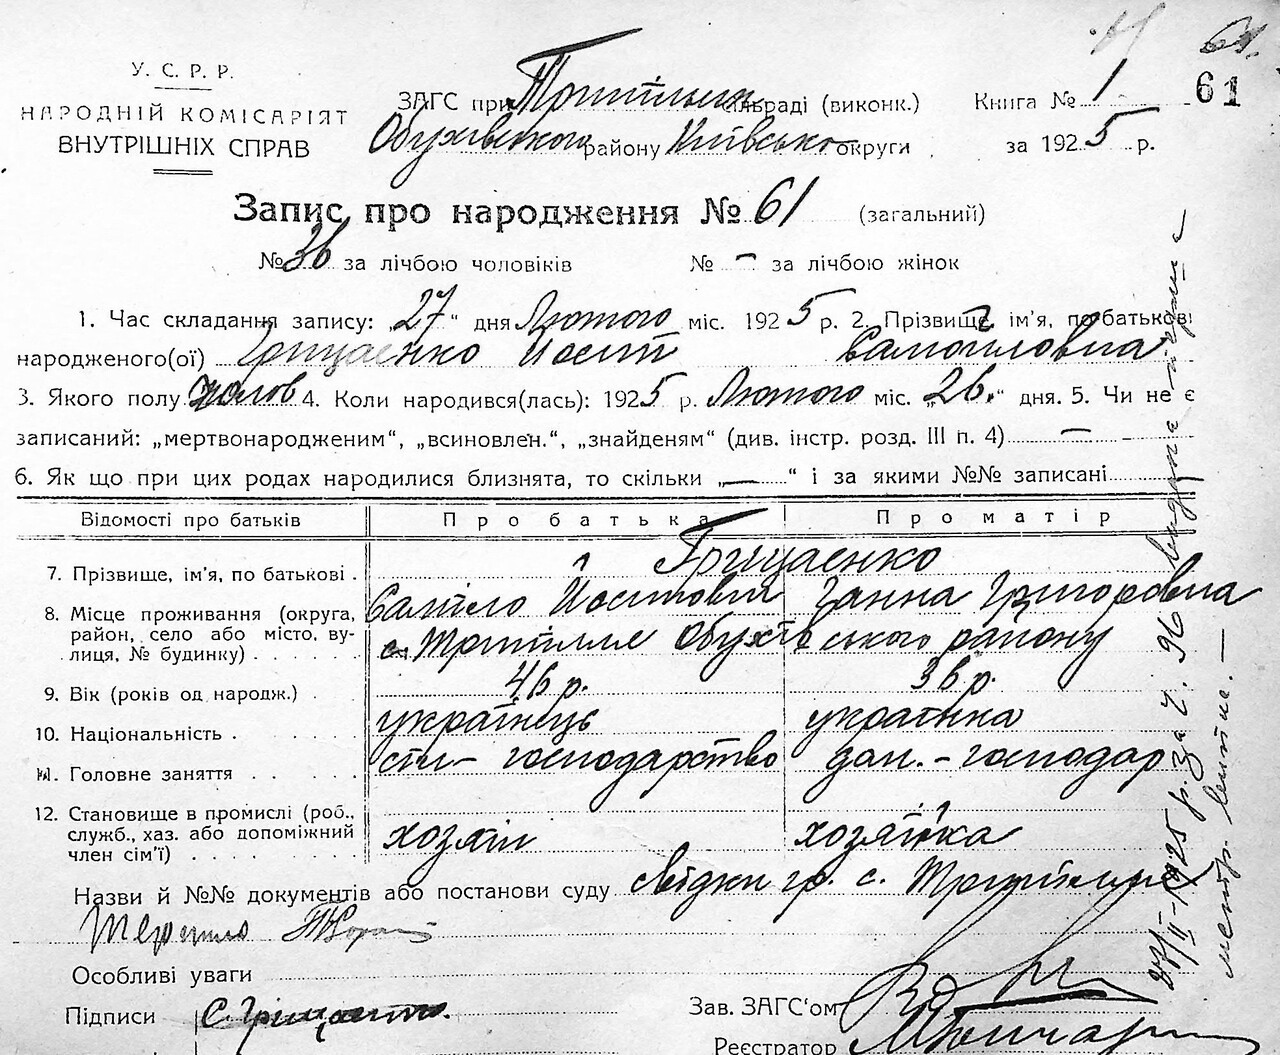 61
У. С. Р. Р.
НАРОДНІЙ КОМІСАРІЯТ
ВНУТРІШНІХ СПРАВ
ЗАГС при Трипільськ сільраді (виконк.) Книга № 1
Обухівського району Київсько округи за 1925 р.
Запис про народження № 61 (загальний)
№ 36 за лічбою чоловіків № — за лічбою жінок
1. Час складання запису: „27“ дня Лютого міс. 1925 р. 2. Прізвище, ім'я, по батькові
народженого(ої) Грицаенко Йосип Самоилович
3. Якого полу чолов 4. Коли народився(лась): 1925 р. Лютого міс. „26.“ дня. 5. Чи не є
записаний: „мертвонародженим“, „всиновлен.“, „знайденям“ (див. інстр. розд. III п. 4) —
6. Як що при цих родах народилися близнята, то скільки „—“ і за якими №№ записані
Відомості про батьків Про батька Про матір
Грицаенко
7. Прізвище, ім'я, по батькові . Самійло Йосипович Ганна Григоровна
8. Місце проживання (округа, район, село або місто, вулиця, № будинку) с. Трипілля Обухівського району
9. Вік (років од народж.) . 46 р. 36 р.
10. Національність . українець українка
11. Головне заняття сіл— господарство дом. — господар
12. Становище в промислі (роб., служб., хаз. або допоміжний член сім'ї) хозяін хозяйка
Назви й №№ документів або постанови суду свідки гр. с. Трипілля
Особливі уваги
Підписи С. Грицаенко.
Зав. ЗАГС'ом
Реєстратор
27/II-1925 р. За ч. 96 видане